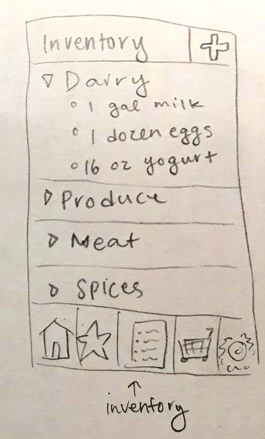 Inventory
Dairy
1 gal milk
1 dozen eggs
16 oz yogurt
Produce
Meat
Spices
inventory